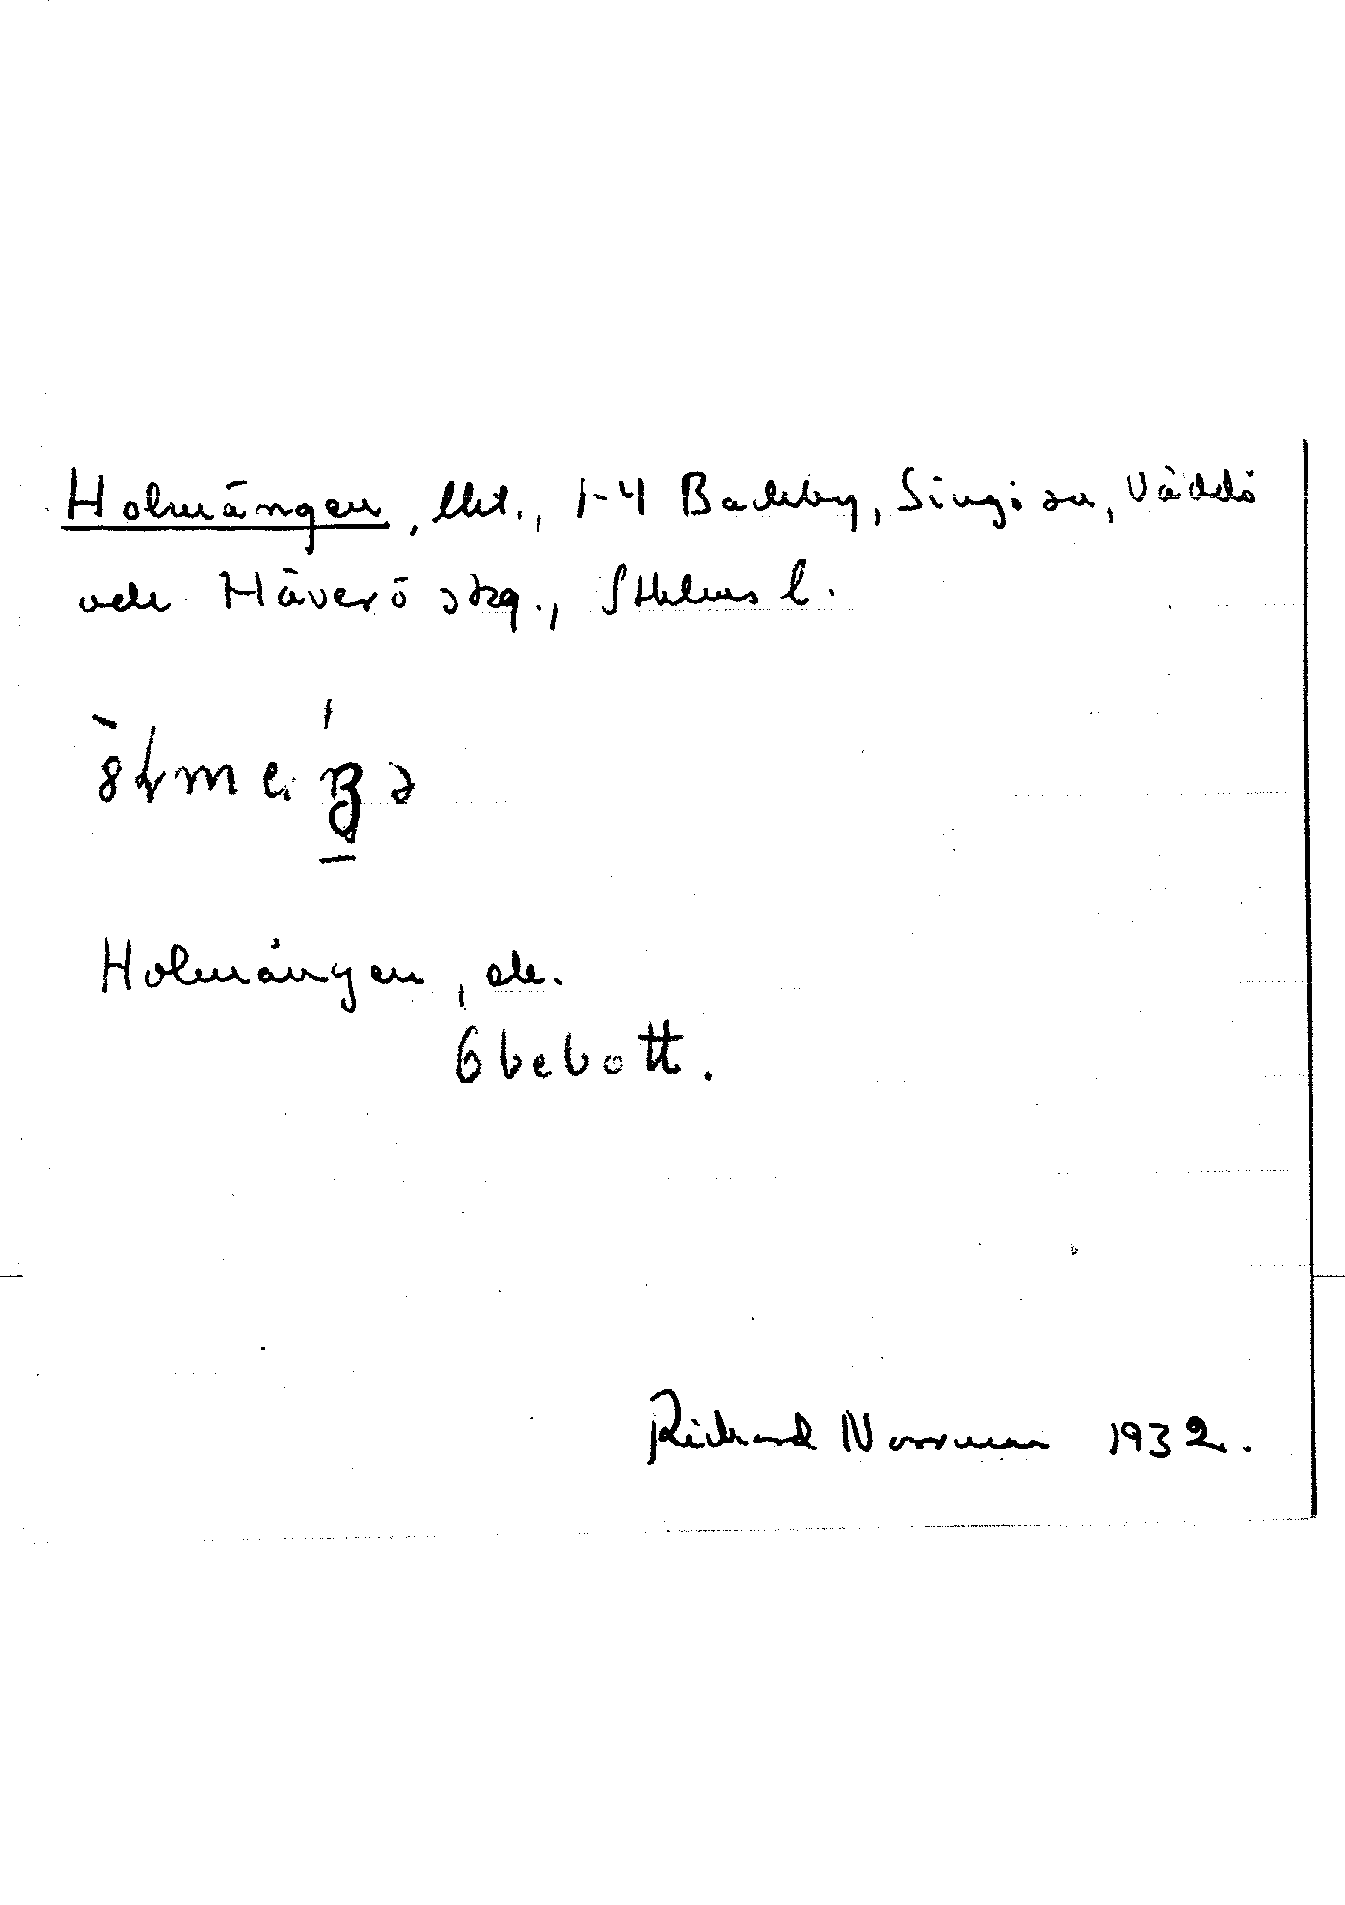 Holmängen, lht., 1-4 Backby, Singö sn, Väddö
och Häverö skg., Sthlms l.
Holmängen, ele.
Obebott.
Richard Norrman 1932.